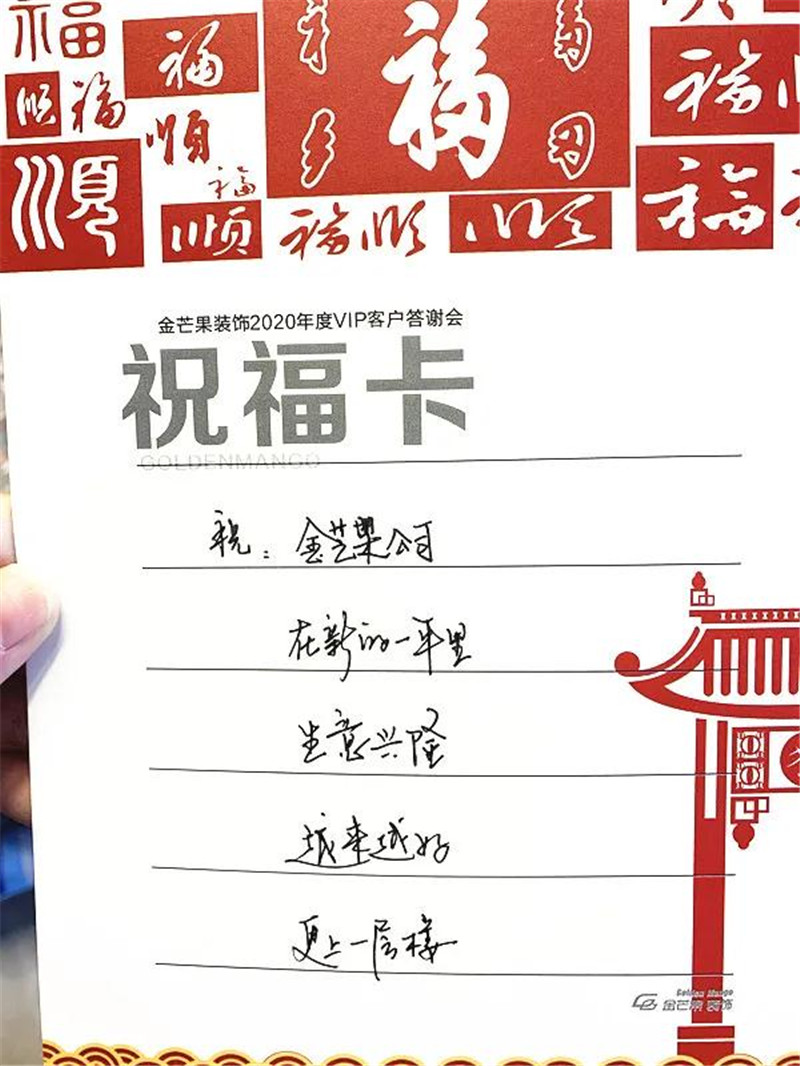 福
福
顺 福
顺
福
福
福
顺
福
顺
福 顺
顺
福
金芒果装饰2020年度VIP客户答谢会
祝福卡
GOLDENMANGO
祝：金芒果公司
在新的一年里
生意兴隆
越来越好
更上一层楼
Golden Mango
金芒果 装饰